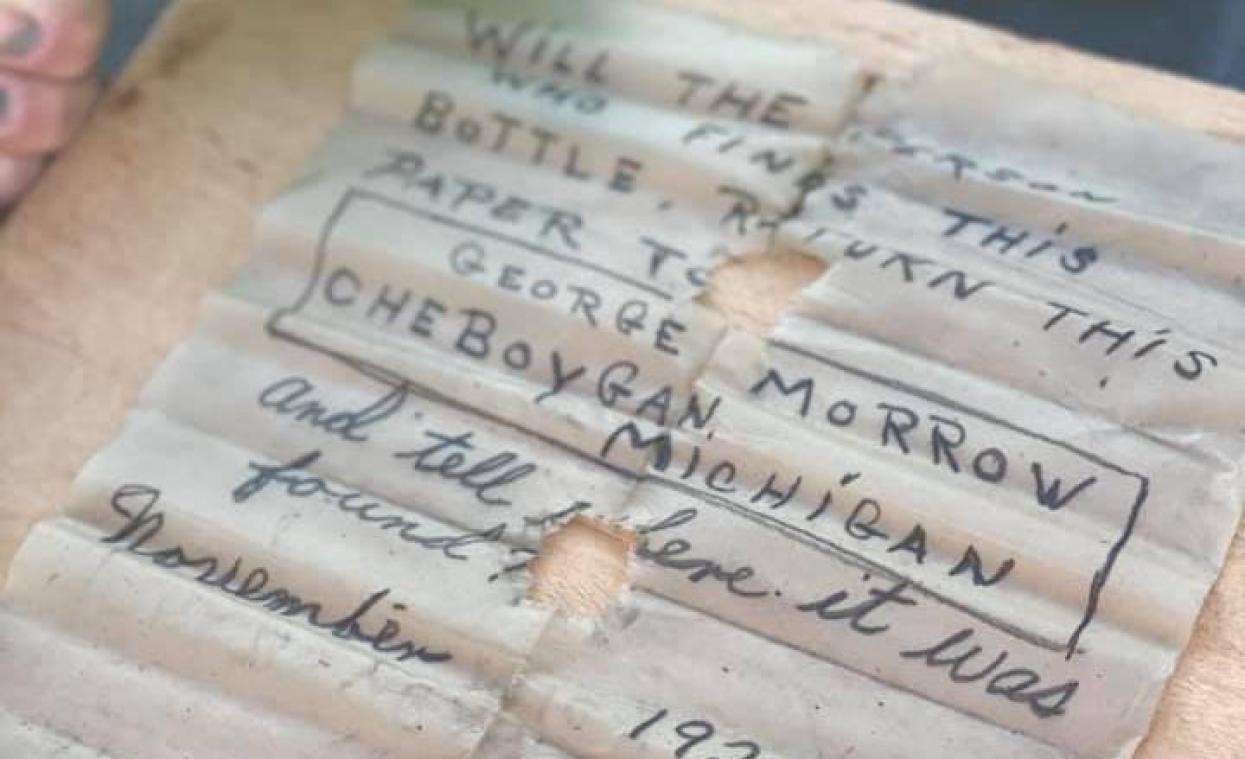 WILL THE PERSON
WHO FINDS THIS
BOTTLE, RETURN THIS
PAPER TO
GEORGE MORROW
CHEBOYGAN,
MICHIGAN
and tell where it was
found?
November
192